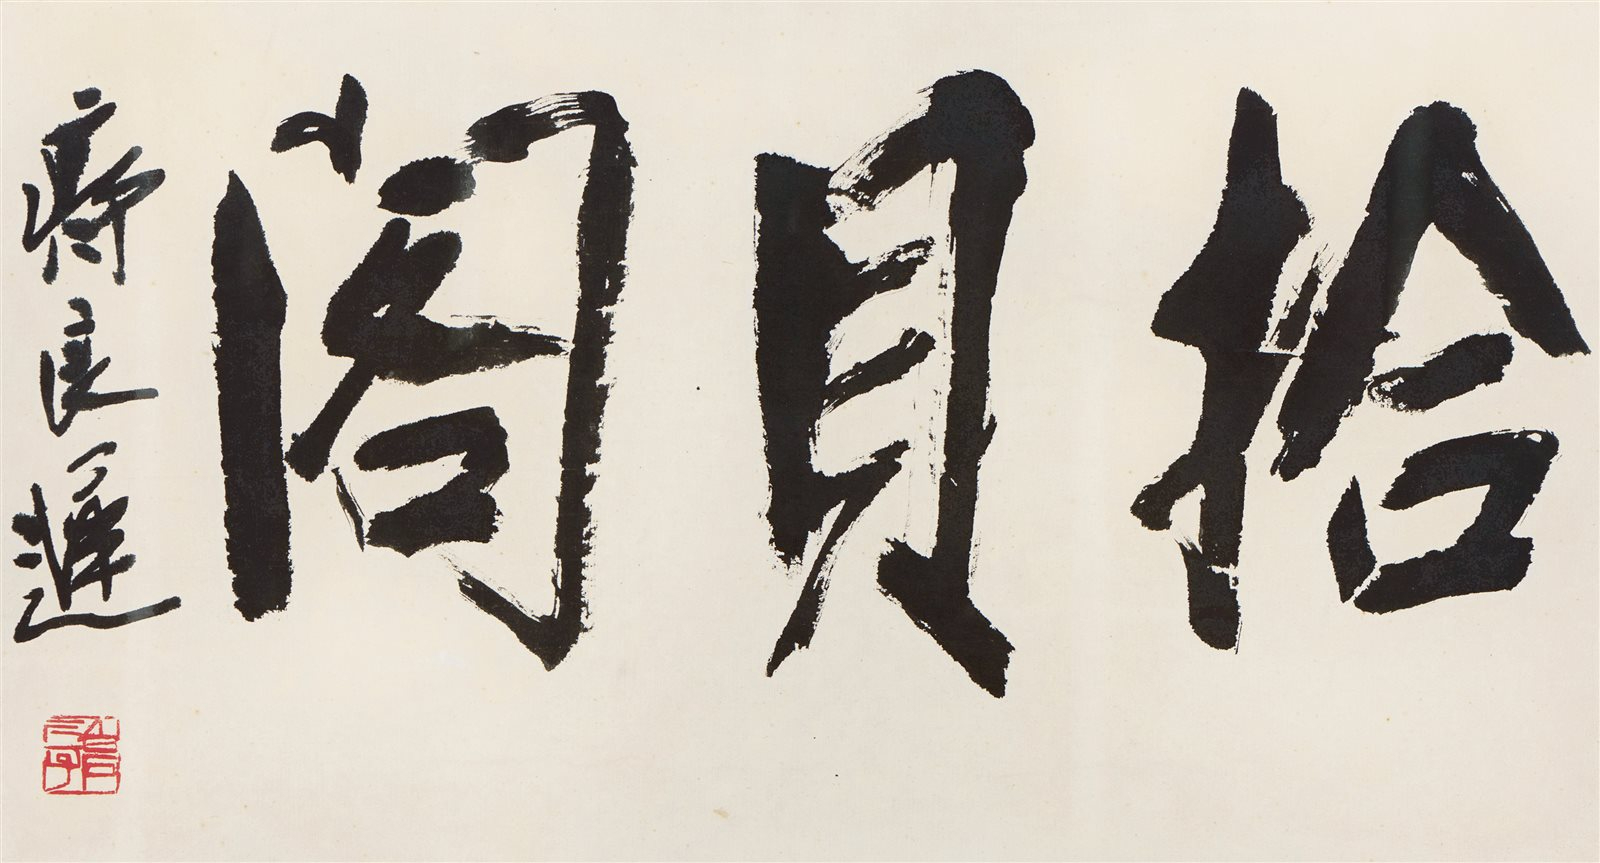 拾貝閣
齊良遲